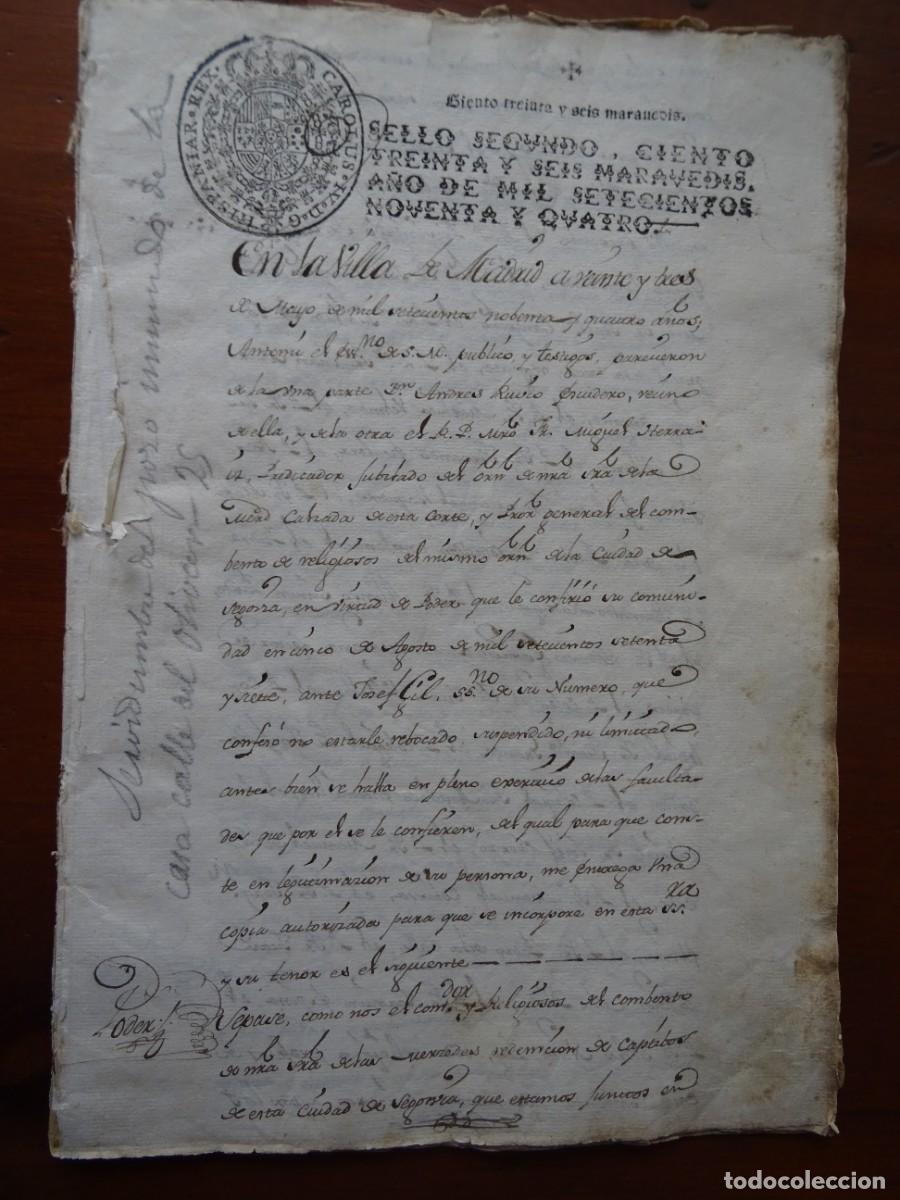 CAROLUS IV D G HISPANIAR REX
Ciento treinta y seis maravedis.
SELLO SEGVNDO, CIENTO
TREINTA Y SEIS MARAVEDIS,
AÑO DE MIL SETECIENTOS
NOVENTA Y QVATRO.
En la Villa de Madrid a veinte y tres
de Mayo, de mil setecientos nobenta y quatro años;
Antemi el SSno. de S. M. publico, y testigos, parecieron
de la una parte Dn. Andres Rubio Escudero, vecino
de ella, y de la otra el R. P. Mro. Fr. Miguel
Predicador Jubilado del Orn de nra Sra de la
Merd Calzada de esta Corte, y Pror general del com-
bento de religiosos del mismo orn de la Ciudad de
Segovia, en virtud de Poder que le confirió su comuni-
dad en cinco de Agosto de mil setecientos setenta
y siete, ante Josef Gil, SSno de su Numero, que
confesó no estarle rebocado, suspendido, ni limitado,
antes bien se halla en pleno exercicio de las faculta-
des que por el se le confieren, del qual para que cons-
te en legitimazion de su persona, me entrega una
copia autorizada para que se incorpore en esta SSra
y su tenor es el siguiente
Poder
Sepase, como nos el comdor y Religiosos del combento
de nra Sra de las Mercedes redencion de Captibos
de esta Ciudad de Segovia, que estamos juntos en
Servidumbre del pozo inmundo de la
casa calle del Olivar 25
todocoleccion